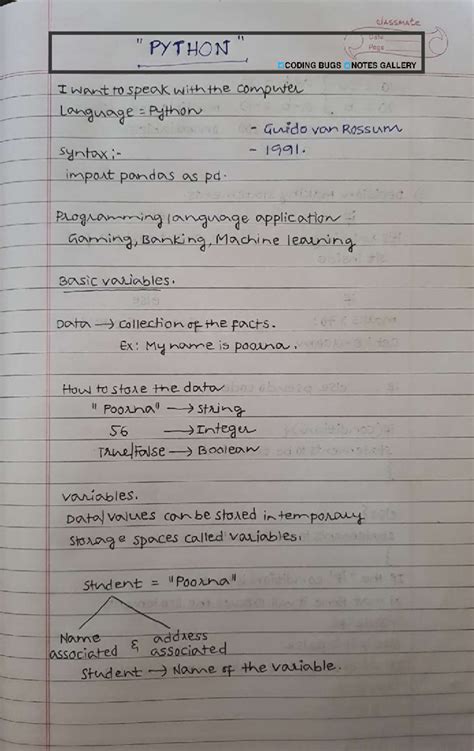 classmate
Date
Page
"PYTHON"
CODING BUGS NOTES GALLERY
I want to speak with the computer
Language = Python
- Guido van Rossum
- 1991.
Syntax:-
import pandas as pd.
Programming language application -
Gaming, Banking, Machine learning
Basic variables.
Data → Collection of the facts.
Ex: My name is poorna.
How to store the data
"Poorna" → String
56 → Integer
True/False → Boolean
Variables.
Data/values can be stored in temporary
storage spaces called variables.
Student = "Poorna"
Name & address
associated associated
Student → Name of the variable.